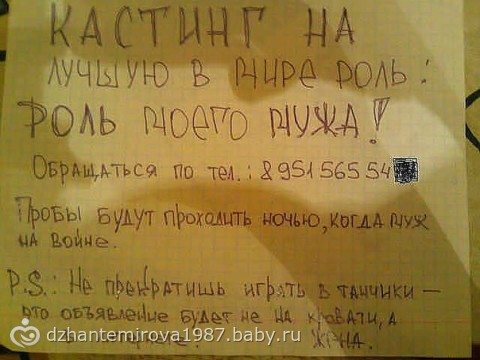 КАСТИНГ НА
ЛУЧШУЮ В МИРЕ РОЛЬ:
РОЛЬ МОЕГО МУЖА!
ОБРАЩАТЬСЯ ПО ТЕЛ.: 8 951 565 54
ПРОБЫ БУДУТ ПРОХОДИТЬ НОЧЬЮ, КОГДА МУЖ
НА ВОЙНЕ.
P.S.: НЕ ПРЕКРАТИШЬ ИГРАТЬ В ТАНЧИКИ —
ЭТО ОБЪЯВЛЕНИЕ БУДЕТ НЕ НА КРОВАТИ, А
ЖЕНА.
dzhantemirova1987.baby.ru